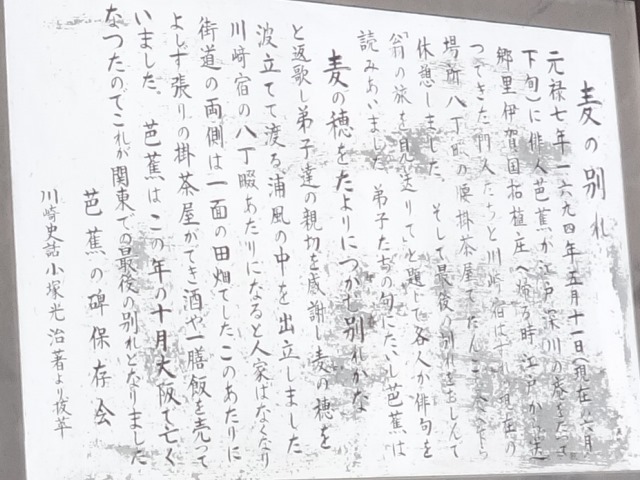 麦の別れ
元禄七年一六九四年五月十一日(現在六月
下旬)に俳人芭蕉が江戸深川の庵をたち
郷里伊賀国柘植庄へ帰る時江戸から送
ってきた門人たちと川崎宿は現在の
場所八丁畷の腰掛茶屋でだんごを
休憩しましたそして最後の別れをおしんで
「翁の旅を見送りて」と題して各人が俳句を
読みあいました弟子たちの句にたいし芭蕉は
麦の穂をたよりにつかむ別れかな
と返歌し弟子達の親切を感謝し麦の穂を
波立てて渡る浦風の中を出立しました
川崎宿の八丁畷あたりになると人家はなくなり
街道の両側は一面の田畑でしたこのあたりに
よしず張りの掛茶屋ができ酒や一膳飯を売って
いました、芭蕉はこの年の十月大阪で亡く
なつたのでこれが関東での最後の別れとなりました
芭蕉の碑保存会
川崎史話小塚光治著より抜萃